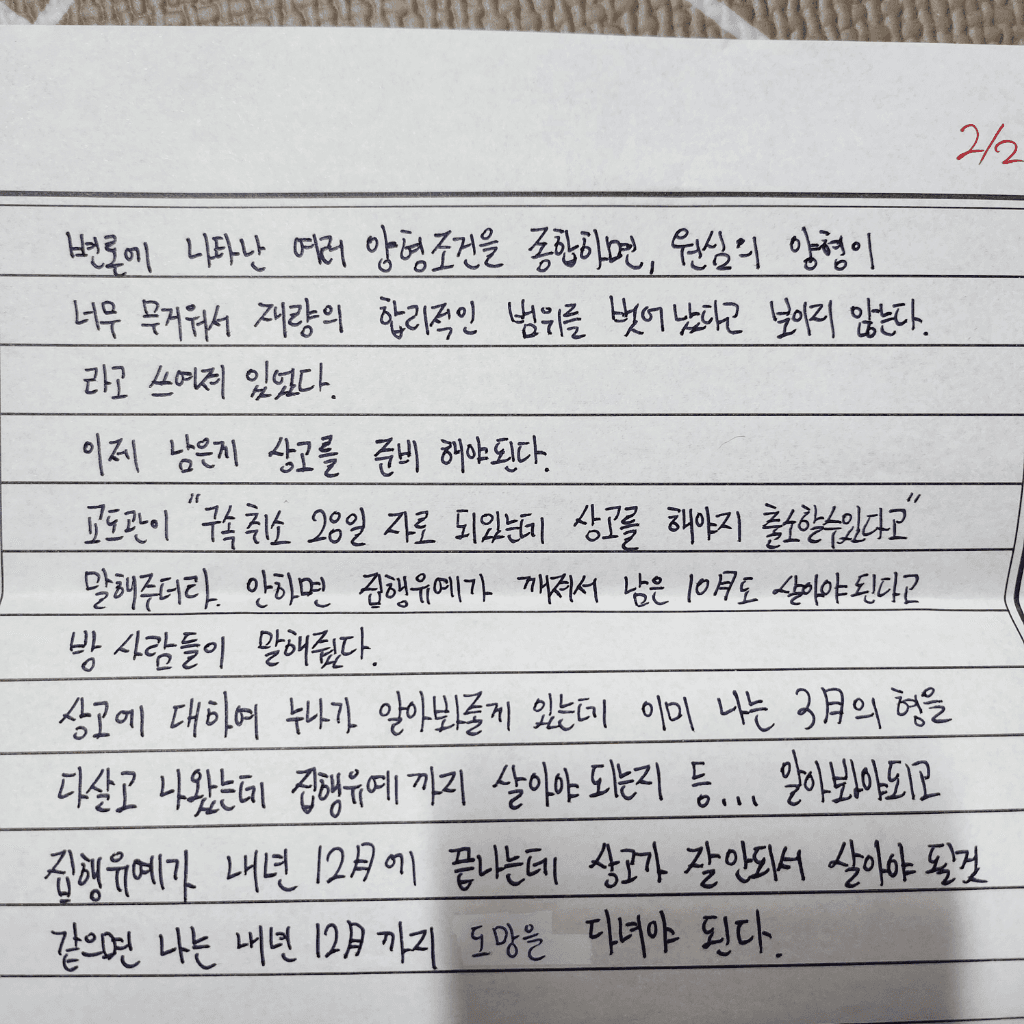 2/2
변론에 나타난 여러 양형조건을 종합하면, 원심의 양형이
너무 무거워서 재량의 합리적인 범위를 벗어 났다고 보이지 않는다.
라고 쓰여져 있었다.
이제 남은지 상고를 준비 해야된다.
교도관이 "구속취소 28일 자로 되있는데 상고를 해야지 출소할수있다고"
말해주더라. 안하면 집행유예가 깨져서 남은 10月도 살아야된다고
방 사람들이 말해줬다.
상고에 대하여 누나가 알아봐줄게 있는데 이미 나는 3月의 형을
다살고 나왔는데 집행유예까지 살아야 되는지 등... 알아봐야되고
집행유예가 내년 12月에 끝나는데 상고가 잘안되서 살아야 될것
같으면 나는 내년 12月까지 도망을 다녀야 된다.